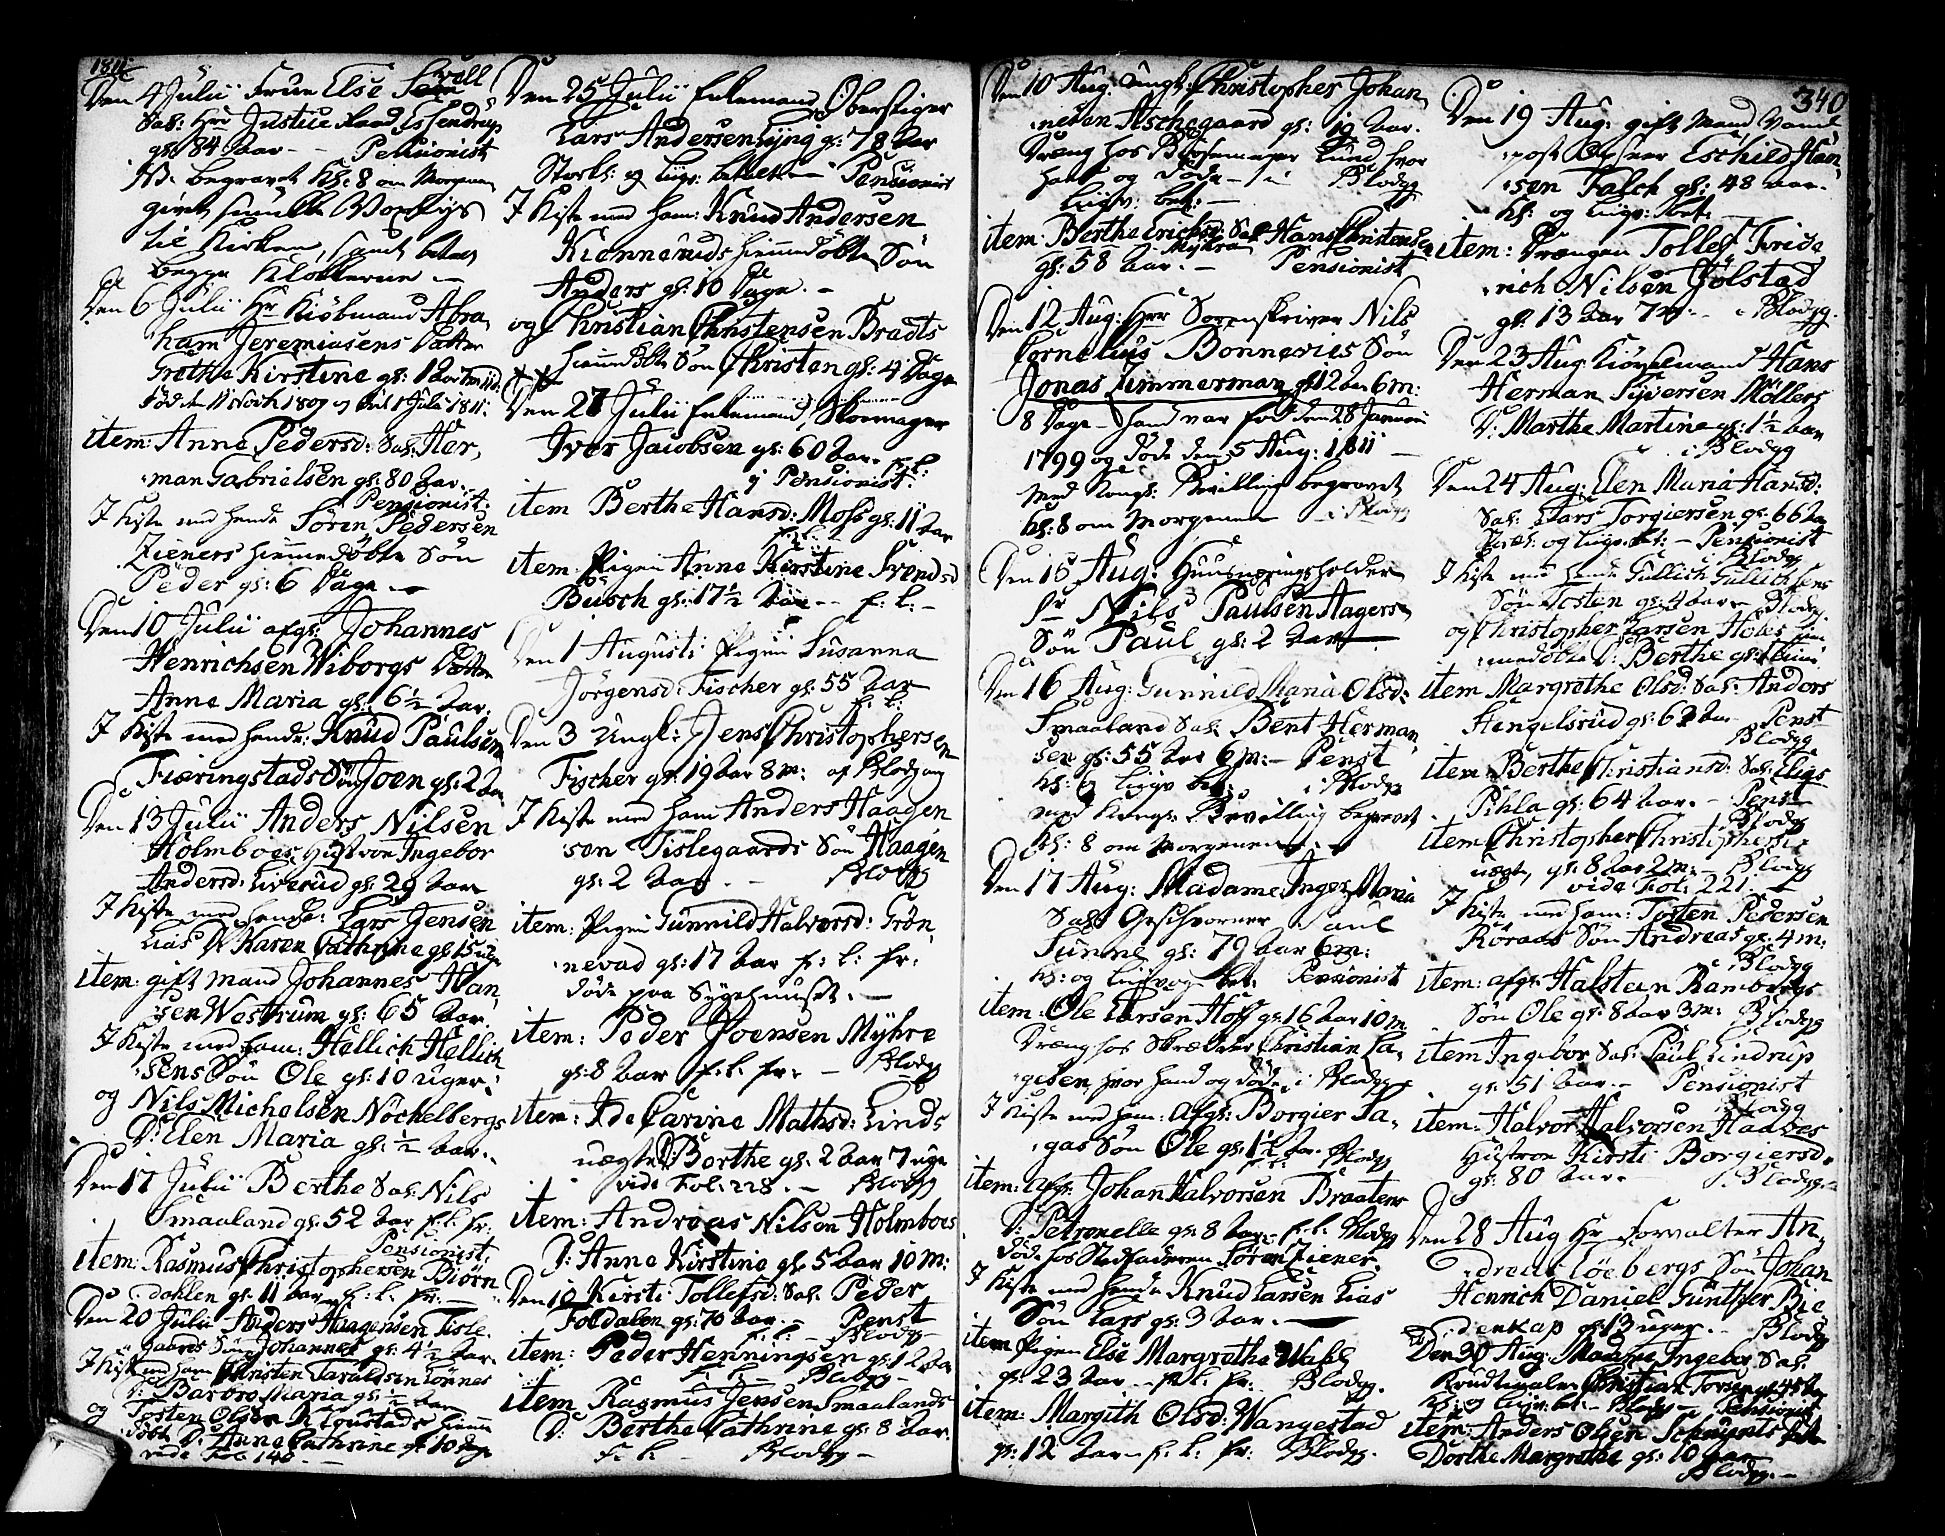 1811.
Den 4 Julii Frue Else
Sal: Hrr Justice Raad Essendrops
gl: 84 Aar - Pensionist
begravet Kl: 8 om Morgenen
givet smukke Voxlys
til Kirken, samt betalt
begge Klokkerne -
Den 6 Julii Hr Kiöbmand Abra,
ham Jeremiasens Datter
Grethe Kirstine gl: 1 Aar
Föd den 11 Novb 1809 og död 1 Julii 1811:
item: Anne Pedersd: Sal: Her,
man Gabrielsen gl: 80 Aar.
Pensionist:
I Kiste med hende Sören Pedersen
Zieners hiemmedöbte Sön
Peder gl: 6 Dage -
Den 10 Julii afgl: Johannes
Henrichsen Wiborgs Datter
Anne Maria gl: 6½ Aar.
I Kiste med hende: Knud Paulsen
Fiæringstads Sön Joen gl: 2 Aar
Den 13 Julii Anders Nilsen
Holmboes Hustroe Ingebor
Andersd: Liverud gl: 29 Aar
I Kiste med hende: Lars Jensen
Lias D: Karen Cathrine gl: 15 uger
item: gift Mand Johannes Han,
sen Wastrum gl: 65 Aar.
I Kiste med ham: Hellich Hellich
sens Sön Ole gl: 10 uger.
og Nils Michelsen Nöchelbergs
D: Elen Maria gl: ½ Aar.
Den 17 Julii Berthe Sal: Nils
Smaaland gl: 52 Aar f: l: fr:
Pensionist,
item: Rasmus Christophersen Biörn
dahlen gl: 11 Aar f: l: fr: -
Den 20 Julii Anders Haagensen Tisle,
gaards Sön Johannes gl: 4½ Aar.
I Kiste med ham Christen Taraldsen
D: Barbro Maria gl: ½ Aar
og Tosten Olsen himme
döbt D: Anne Cathrine gl: 10 dage
vide Fol 140 -
Den 25 Julii Enkemand, Oberstiger
Lars Andersen Lyng gl: 78 Aar
Pensionist
I Kiste med ham: Knud Andersen
Kiennerids hiemmedöbte Sön
Anders gl: 10 Dage. -
og Christian Christensen Bradts
hiemmedöbte Sön Christen gl: 4 Dage
Den 27 Julii Enkemand, Skomager
Iver Jacobsen gl: 60 Aar. f: l:
Pensionist.
item Berthe Hansd: Moss gl: 11 Aar
f: l:
item: Pigen Anne Kirstine Svendsd
Busch gl: 17½ Aar - f: l: -
Den 1 Augusti Pigen Susanna
Jörgensd: Fischer gl: 55 Aar
f: l:
Den 3 Ungk: Jens Christophersen
Fischer gl: 19 Aar 8 m: af Blodgang
I Kiste med ham Anders Haagen
sen Tislegaards Sön Haagen
gl: 2 Aar. - Blodgg
item: Pigen Gunnild Halvorsd: Grön,
nevad gl: 17 Aar f: l: fr:
döde paa Sygehuuset. -
item: Peder Joensen Myhre
gl: 8 Aar f: l: fr: - Blodgg
item: Ide Carine Mathsd: Linds
uægte D: Berthe gl: 2 Aar 7 uger
vide Fol: 228. - Blodgg
item: Andreas Nilsen Holmboes
D: Anne Kirstine gl: 5 Aar 10 m:
Den 10 Kirsti Tollefsd: Sal: Peder
Foldalen gl: 70 Aar. - Penst
f: l: - Blodgg -
item: Peder Henningsen gl: 12 Aar
f: l: - Blodgg -
item Rasmus Jensen Smaalands
D: Berthe Cathrine gl: 8 Aar.
f: l: Blodgg -
Den 10 Aug: Ungk: Christopher Johan,
nesen Aschegaard gl: 19 Aar.
Dræng hos Lund, hvor
hand og döde - i Blodgg
Liigv: bet: -
item: Berthe Erichsd: Sal: Hans Christensen
Myhra
gl: 58 Aar. - Pensionist
Den 12 Aug: Herr Sorenskriver Nils
Cornelius Bonnevies Sön
Jonas Limmerman gl: 12 Aar 6 m:
8 Dage - hand var föd den 28 Januarii
1799 og döde den 5 Aug: 1811 -
med Kongl: Bevilling begravet
Kl: 8 om Morgenen - i Blodgg
Den 16 Aug: Huusnæringsholder
Sr Nils Paulsen Hagers
Sön Paul gl: 2 Aar
Den 16 Aug: Gunnild Maria Olsd:
Smaaland Sal: Bent Herman,
sen gl: 55 Aar 6 m: - Penst
Kl: og Liigv bet: i Blodgg
med Kongl: Bevilling begravet
Kl: 8 om Morgenen. -
Den 17 Aug: Madame Inger Maria
Sal: Geschvorner Paul
Tunne gl: 79 Aar 6 m:
Kl: og Liigvogn bet: Pensionist
item: Ole Larsen Hoff gl: 16 Aar 10 m
Dræng hos Skrædder Christian La,
gesen, hvor hand og döde, i Blodgg
I Kiste med ham: Afgl: Borgier La,
gas Sön Ole gl: 1½ Aar. Blodgg
item: Afgl: Johan Halvorsen Braatens
D: Petronelle gl: 8 Aar. f: l. Blodgg
döde hos Stedfaderen Sören Ziener.
I Kiste med hende Knud Larsen Lias
Sön Lars gl: 3 Aar. -
item Pigen Else Margrethe Wahl
gl: 23 Aar - f: l: fr: Blodgg.
item: Margith Olsd: Wangestad
gl: 12 Aar - f: l: fr: Blodgg.
340
Den 19 Aug: gift Mand
Opseer Eschild Han
sen Falch gl: 48 Aar.
Kl: og Liigv: bet:
item: Drængen Tollef Fride
rich Nilsen Jölstad
gl: 13 Aar 7 m: - i Blodgg.
Den 23 Aug Kiörselmand Hans
Herman Syversen Möllers
D: Marthe Martine gl: 1½ Aar
i Blodgg
Den 24 Aug: Elen Maria Hansd:
Sal: Lars Torgiersen gl: 66 Aar
Kl: og Liigv: bet: - Pensionist
i Blodgg
I Kiste med hende Gullich Gullichsens
Sön Tosten gl: 4 Aar - Blodgg
og Christopher Larsen Holes him
medöbte D: Berthe gl: 1 time
item Margrethe Olsd: Sal: Anders
Hengelsrud gl: 62 Aar Penst
Blodgg
item: Berthe Christiansd: Sal: Elias
Pihla gl: 64 Aar. - Penst
Blodgg
item Christopher Christophersen
uægte, gl: 8 Aar 2 m: - Blodgg
vide Fol: 221. -
I Kiste med ham: Tosten Pedersen
Röraas Sön Andreas gl: 4 m:
i Blodgg
item: afgl: Halstein Rambergs
Sön Ole gl: 8 Aar 3 m: Blodgg
item Ingebor Sal: Paul Lindrup
gl: 51 Aar. - Pensionist
i Blodgg
item: Halvor Halvorsen Haavis
Hustroe Kirsti Borgiersd.
gl: 80 Aar. - i Blodgg. -
Den 28 Aug Hr Forvalter An,
dreas Löebergs Sön Johan
Henrich Daniel Günther Bie
denkap gl: 13 uger. - Blodgg
Den 30 Aug: Madme Ingebor Sal:
Krudtmaler Christian Torsen gl: 45 Aar
Kl: og Liigv: bet: - Blodgg - Pensionist
item: Anders Olsen Schuynts Dat
Dorthe Margrethe gl: 10 Aar
Blodgg. -